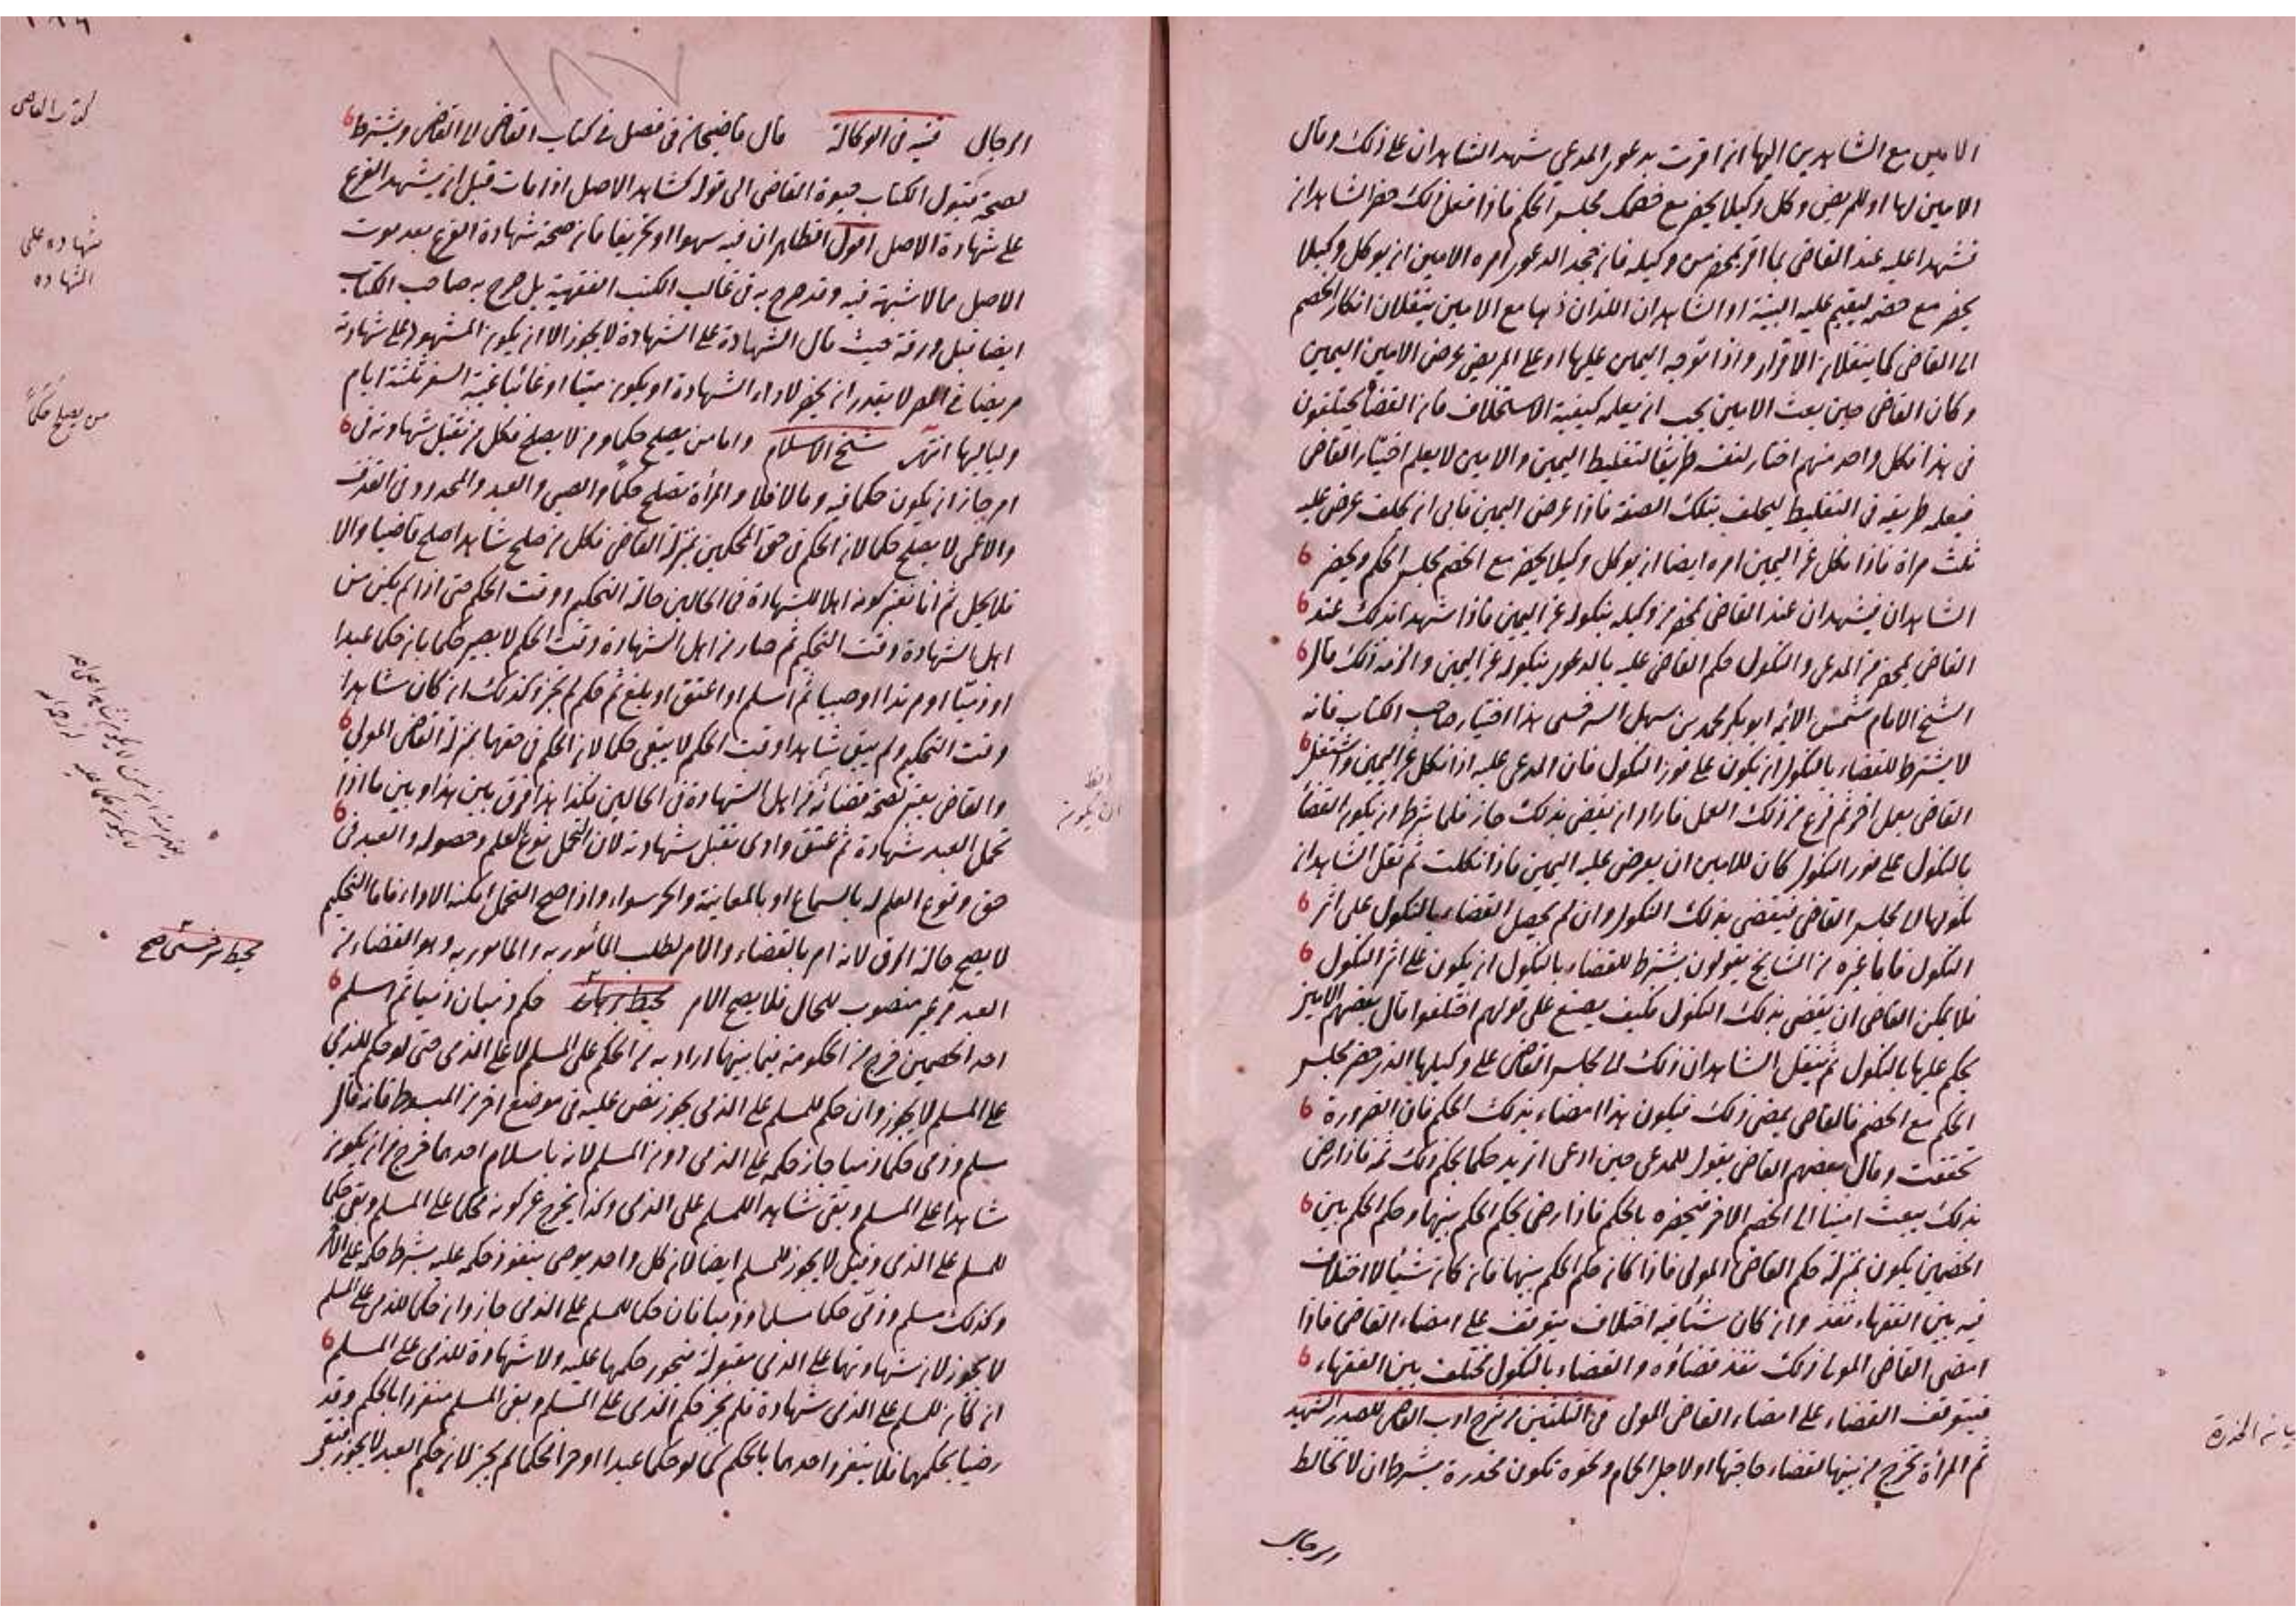 الامين مع الشاهدين اليها انها اقرت بدعوى المدعى شهد الشاهدان على ذلك وقال
الامين لها او للمريض وكل وكيلا يحضر مع خصمك مجلس الحكم فاذا فعل ذلك حضر الشاهدان
فشهدا عليه عند القاضى بما اقر بمحضر من وكيله فان جحد الدعوى امره الامين ان يوكل وكيلا
يحضر مع خصمه ليقيم عليه البينة او الشاهدان اللذان ذهبا مع الامين ينقلان انكار الخصم
الى القاضى كما ينقلان الاقرار واذا توجه اليمين عليها او على المريض عرض الامين اليمين
وكان القاضى حين بعث الامين يجب ان يعلمه كيفية الاستحلاف فان القضاة يختلفون
فى هذا فكل واحد منهم اختار لنفسه طريقا لتغليظ اليمين والامين لا يعلم اختيار القاضى
فيعلمه طريقه فى التغليظ ليحلف بتلك الصفة فاذا عرض اليمين فابى ان يحلف عرض عليه
ثلث مراة فاذا نكل عن اليمين امره ايضا ان يوكل وكيلا يحضر مع الخصم مجلس الحكم ويحضر
الشاهدان فيشهدان عند القاضى بمحضر من وكيله بنكوله عن اليمين فاذا شهدا بذلك عند
القاضى بمحضر من المدعى والنكول حكم القاضى عليه بالدعوى بنكوله عن اليمين والزمه ذلك قال
الشيخ الامام شمس الائمه ابو بكر محمد بن سهل السرخسى هذا اختيار صاحب الكتاب فانه
لا يشترط للقضاء بالنكول ان يكون على فور النكول فان المدعى عليه اذا نكل عن اليمين واشتغل
القاضى بعمل اخر ثم فرغ من ذلك العمل فاراد ان يقضى بذلك جاز فلما شرط ان يكون القضا
بالنكول على فور النكول كان للامين ان يعرض عليه اليمين فاذا نكلت ثم نقل الشاهدان
نكولها الى مجلس القاضى فيقضى بذلك النكول وان لم يحصل القضاء بالنكول على اثر
النكول فاما غيره من المشايخ يقولون يشترط للقضاء بالنكول ان يكون على اثر النكول
فلا يمكن القاضى ان يقضى بذلك النكول فكيف يصنع على قولهم اختلفوا قال بعضهم الامين
يحكم عليها بالنكول ثم ينقل الشاهدان ذلك الى مجلس القاضى على وكيلها الذى حضر مجلس
الحكم مع الخصم فالقاضى يمضى ذلك فيكون هذا امضاء بذلك الحكم فان الضرورة
تحققت وقال بعضهم القاضى يقول للمدعى حين ادعى اتريد حكما يحكم ذلك ثمه فاذا رضى
بذلك يبعث امينا الى الخصم الاخر فيخبره بالحكم فاذا رضى بحكم الحكم بينهما وحكم الحكم بين
الخصمين يكون بمنزلة حكم القاضى المولى فاذا كان حكم الحكم بينهما فان كان شيئا لا اختلاف
فيه بين الفقهاء نفذ وان كان شيئا فيه اختلاف يتوقف على امضاء القاضى فاذا
امضى القاضى المولى ذلك نفذ قضاؤه والقضاء بالنكول مختلف بين الفقهاء
فيتوقف القضاء على امضاء القاضى المولى فى الثلثين من شرح ادب القاضى للصدر الشهيد
ثم المرأة تخرج من بيتها لقضاء حاجتها او لاجل الحمام ونحوه تكون مخدرة بشرط ان لا تخالط
الرجال
الرجال قنيه فى الوكالة قال قاضيخان فى فصل فى كتاب القاضى الى القاضى ويشترط
لصحة قبول الكتاب حيوة القاضى الى قوله كشاهد الاصل اذا مات قبل ان يشهد الفرع
على شهادة الاصل اقول الظاهر ان فيه سهوا او تحريفا فان صحة شهادة الفرع بعد موت
الاصل مما لا شبهة فيه وقد صرح به فى غالب الكتب الفقهية بل صرح به صاحب الكتاب
ايضا قبل ورقة حيث قال الشهادة على الشهادة لا يجوز الا ان يكون المشهود على شهادته
مريضا فى المصر لا يقدر ان يحضر لاداء الشهادة او يكون ميتا او غائبا غيبة السفر ثلثة ايام
ولياليها انتهى شيخ الاسلام واما من يصلح حكما ومن لا يصلح فكل من تقبل شهادته فى
امر جاز ان يكون حكما فيه وما لا فلا والمرأة تصلح حكما والصبى والعبد والمحدود فى القذف
والاعمى لا يصلح حكما لان الحكم فى حق المحكمين بمنزلة القاضى فكل من صلح شاهدا صلح قاضيا والا
فلا يحل ثم انما نعتبر كونه اهلا للشهادة فى الحالين حالة التحكيم ووقت الحكم حتى اذا لم يكن من
اهل الشهادة وقت التحكيم ثم صار من اهل الشهادة وقت الحكم لا يصير حكما بان حكما عبدا
او ذميا او مرتدا او صبيا ثم اسلم او اعتق او بلغ ثم حكم لم يجز وكذلك ان كان شاهدا
وقت التحكيم ولم يبق شاهدا وقت الحكم لا يبقى حكما لان الحكم فى حقهما بمنزلة القاضى المولى
والقاضى يعتبر لصحة قضائه من اهل الشهادة فى الحالين فكذا هذا فرق بين هذا وبين ما اذا
تحمل العبد شهادة ثم عتق وادى تقبل شهادته لان التحمل نوع العلم وحصوله والعبد فى
حق وقوع العلم له بالسماع او بالمعاينة والحر سواء واذا صح التحمل امكنه الاداء فاما التحكيم
لا يصح حالة الرق لانه امر بالقضاء والامر لطلب المأمور به والمامور به وهو القضاء من
العبد غير متصور للحال فلا يصح الامر حكم ذميان ذميا ثم اسلم
احد الخصمين خرج من الحكومة فيما بينهما اراد به من الحكم على المسلم لا على الذمى حتى لو حكم للذمى
على المسلم لا يجوز وان حكم للمسلم على الذمى يجوز نص عليه فى موضع اخر من المبسوط فانه قال
مسلم وذمى حكما ذميا جاز حكمه على الذمى دون المسلم لانه باسلام احدهما خرج من ان يكون
شاهدا على المسلم وبقى شاهدا للمسلم على الذمى وكذا يخرج عن كونه محكما على المسلم وبقى حكما
للمسلم على الذمى وقيل لا يجوز للمسلم ايضا لان كل واحد يرضى بنفوذ حكمه عليه بشرط حكمه على الاخر
وكذلك مسلم وذمى حكما مسلما وذميا فان حكما للمسلم على الذمى جاز وان حكما للذمى على المسلم
لا يجوز لان شهادتهما على الذمى مقبولة فيجوز حكمهما عليه ولا شهادة للذمى على المسلم
ان كان للمسلم على الذمى شهادة فلم يجز حكم الذمى على المسلم وبقى المسلم منفردا بالحكم وقد
رضيا بحكمهما فلا ينفرد احدهما بالحكم كما لو حكما عبدا او حرا فحكما لم يجز لان حكم العبد لا يجوز فبقى
كتاب القاضى
شهاده على
الشهاده
من يصلح حكما
محيط سرخسى صح